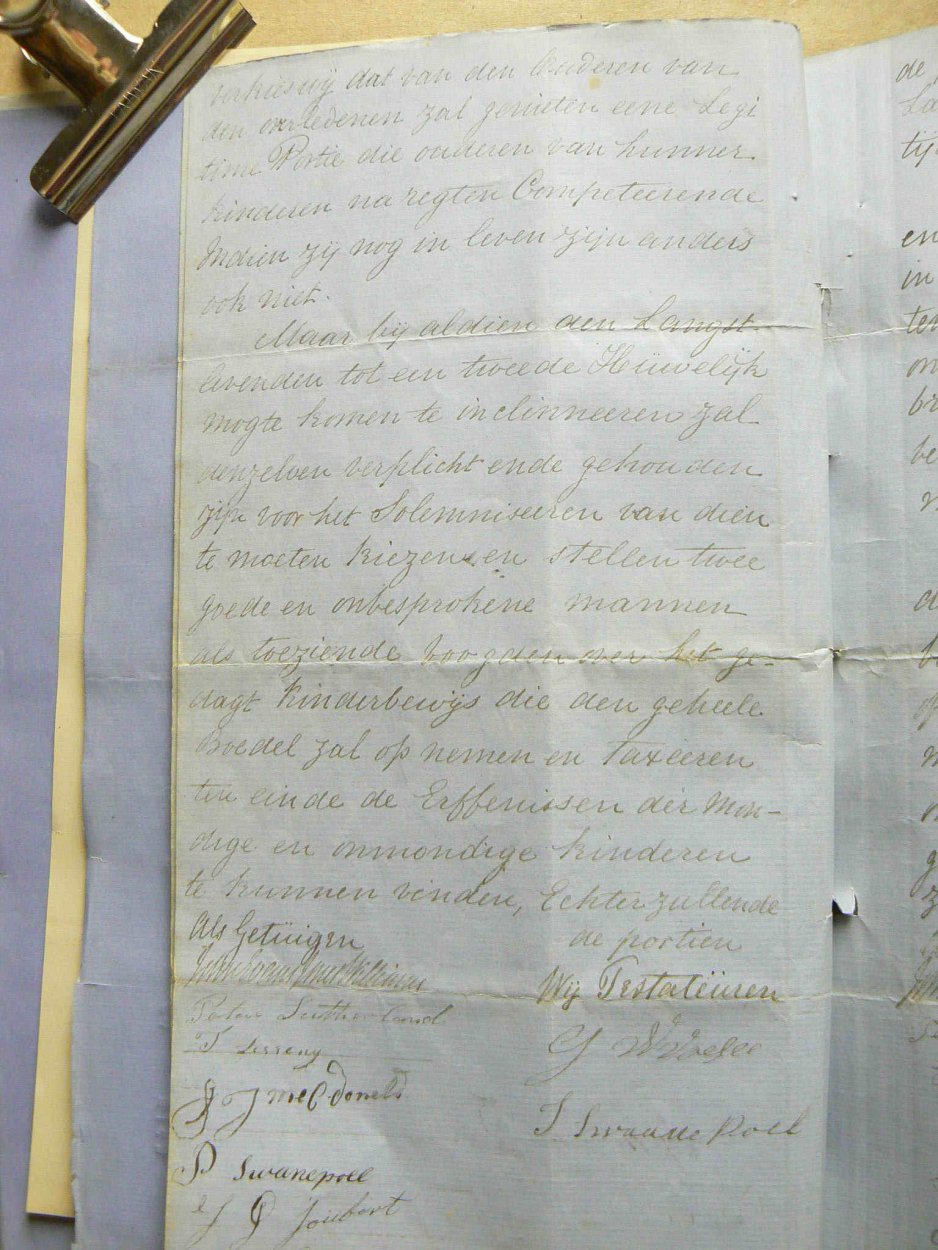 verkiesing dat van den kinderen van
den overledenen zal genieten eene Legi
time Portie die ouderen van hunner
kinderen na regten Competeerende
Indien zij nog in leven zijn anders
ook niet.
Maar bij aldien den Langst-
levenden tot een tweede Hüwelijk
mogte komen te inclinneeren zal
denzelven verplicht ende gehouden
zijn voor het Solemniseeren van dien
te moeten kiezen en stellen twee
goede en onbesprokene mannen
als toeziende voogden over het ge-
dagt Kinderbewijs die den geheele
Boedel zal op nemen en Taxeeren
ten einde de Erffenissen der Mon-
dige en onmondige kinderen
te kunnen vinden, Echter zullende
de portien
Als Getüigen
Wij Testateüren
Peter Sutherland
T
J McDonald
S Swanepoel
P Swanepoel
J P Joubert
de
en
in